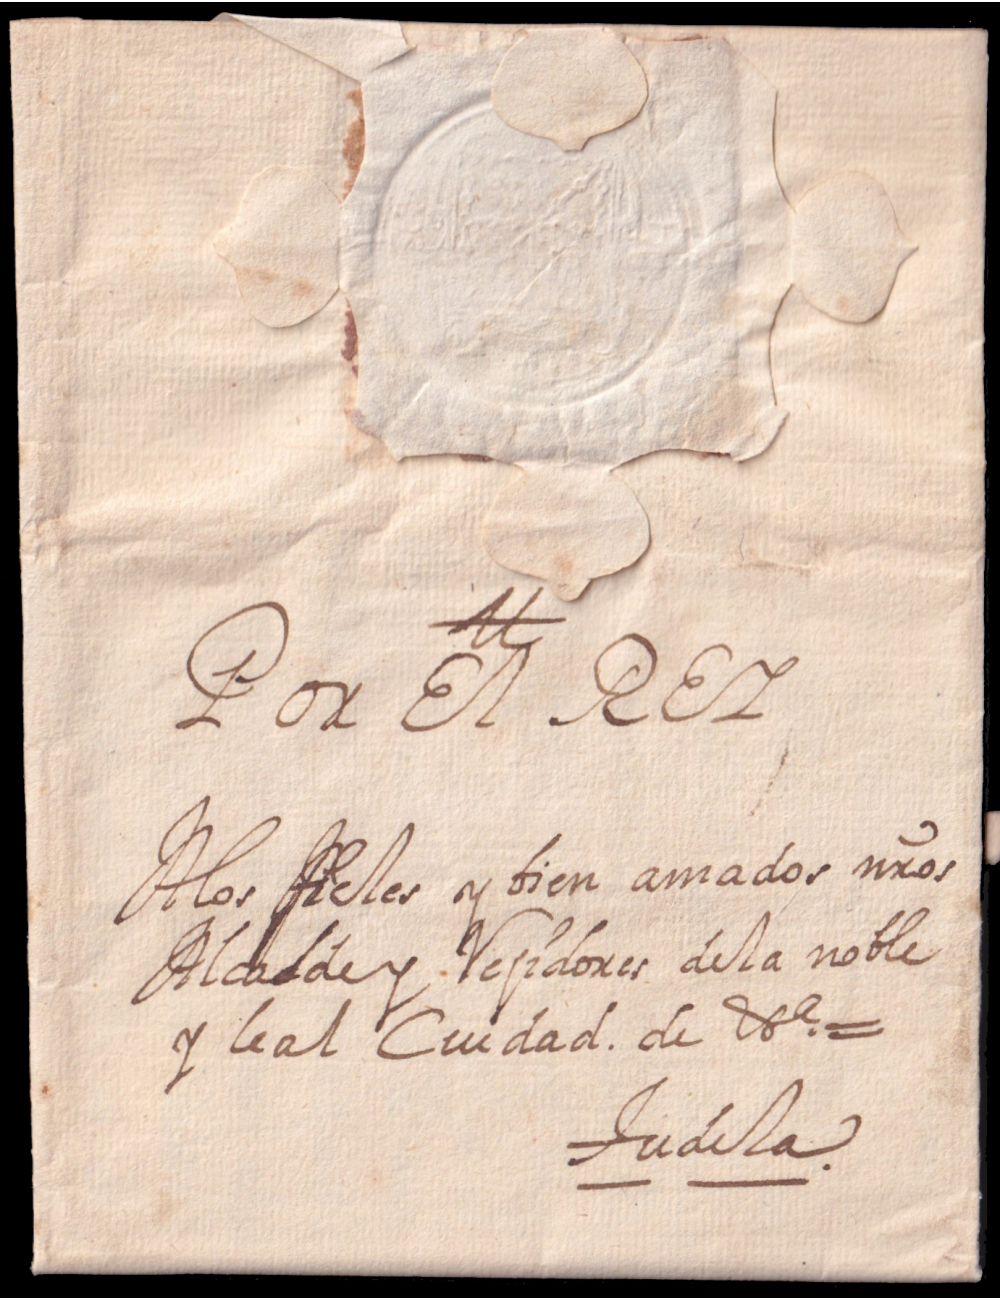 Por El REY
Alos fieles y bien amados nr̃os
Alcalde y Rejidores dela noble
y leal Ciudad. de &ª. =
Tudela.